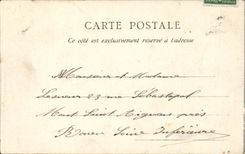 CARTE POSTALE
Ce côté est exclusivement réservé à l'adresse
Monsieur et Madame
Lesueur 23 rue Sébastopol
Mont Saint Aignan près
Rouen Seine Inférieure